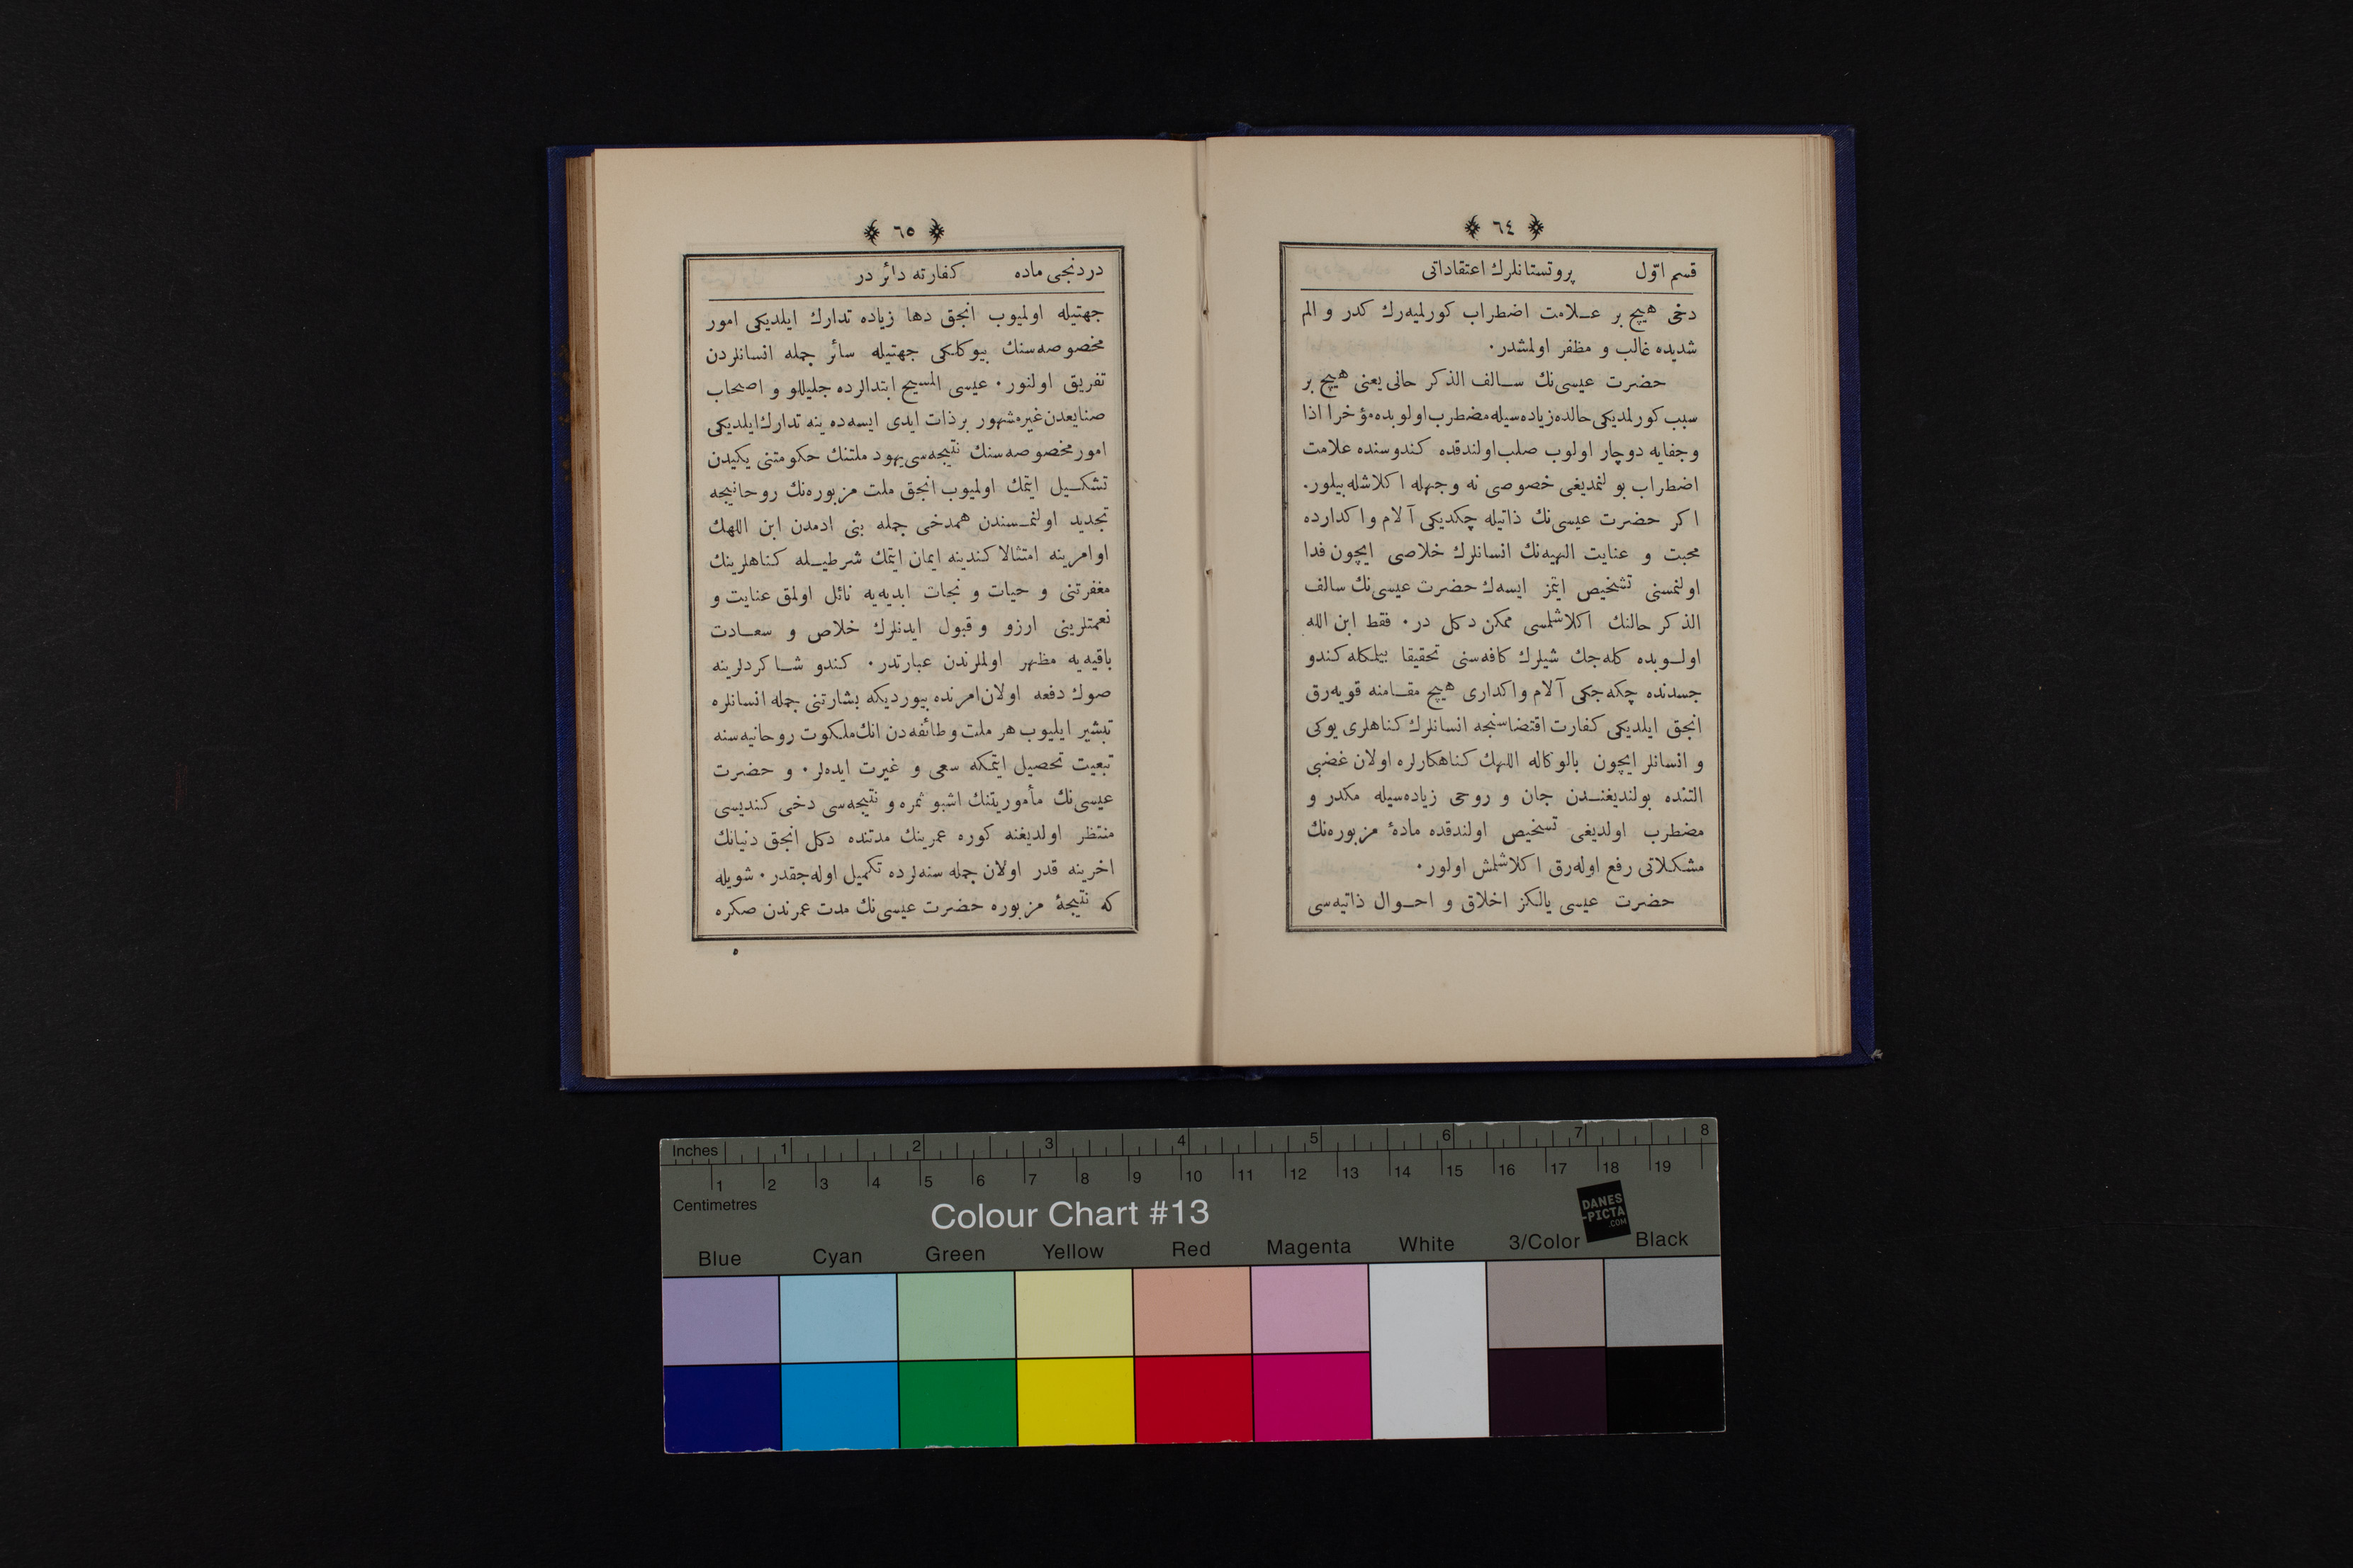 ٦٤
قسم اوّل پروتستانلرك اعتقاداتی
دخی هیچ بر علامت اضطراب كورلمیه‌رك كدر و الم
شدیده غالب و مظفر اولمشدر٠
حضرت عیسی‌نك سالف الذكر حالی یعنی هیچ بر
سبب كورلمدیكی حالده زیاده‌سیله مضطرب اولوبده مؤخرا اذا
وجفایه دوچار اولوب صلب اولندقده كندوسنده علامت
اضطراب بولنمدیغی خصوصی نه وجهله اكلاشله‌بیلور.
اكر حضرت عیسی‌نك ذاتیله چكدیكی آلام و اكدارده
محبت و عنایت الهیه‌نك انسانلرك خلاصی ایچون فدا
اولنمسنی تشخیص ایتمز ایسه‌ك حضرت عیسی‌نك سالف
الذكر حالنك اكلاشلمسی ممكن دكل در٠ فقط ابن الله
اولوبده كله‌جك شیلرك كافه‌سنی تحقیقا بیلمكله كندو
جسدنده چكه‌جكی آلام و اكداری هیچ مقامنه قویه‌رق
انجق ایلدیكی كفارت اقتضاسنجه انسانلرك كناهلری یوكی
و انسانلر ایچون بالوكاله اللهك كناهكارلره اولان غضبی
التنده بولندیغندن جان و روحی زیاده‌سیله مكدر و
مضطرب اولدیغی تشخیص اولندقده مادۀ مزبوره‌نك
مشكلاتی رفع اوله‌رق اكلاشلمش اولور٠
حضرت عیسی یالكز اخلاق و احوال ذاتیه‌سی
٦٥
دردنجی ماده كفارته دائر در
جهتیله اولمیوب انجق دها زیاده تدارك ایلدیكی امور
مخصوصه‌سنك بیوكلكی جهتیله سائر جمله انسانلردن
تفریق اولنور٠ عیسی المسیح ابتدالرده جلیللو و اصحاب
صنایعدن غیرمشهور برذات ایدی ایسه‌ده ینه تدارك ایلدیكی
امور مخصوصه‌سنك نتیجه‌سی یهود ملتنك حكومتنی یكیدن
تشكیل ایتمك اولمیوب انجق ملت مزبوره‌نك روحانیجه
تجدید اولنمسندن همدخی جمله بنی ادمدن ابن اللهك
اوامرینه امتثالا كندینه ایمان ایتمك شرطیله كناهلرینك
مغفرتنی و حیات و نجات ابدیه‌یه نائل اولمق عنایت و
نعمتلرینی ارزو و قبول ایدنلرك خلاص و سعادت
باقیه‌یه مظهر اولملرندن عبارتدر٠ كندو شاكردلرینه
صوك دفعه اولان امرنده بیوردیكه بشارتنی جمله انسانلره
تبشیر ایلیوب هر ملت و طائفه‌دن انك ملكوت روحانیه‌سنه
تبعیت تحصیل ایتمكه سعی و غیرت ایده‌لر٠ و حضرت
عیسی‌نك مأموریتنك اشبو ثمره و نتیجه‌سی دخی كندیسی
منتظر اولدیغنه كوره عمرینك مدتنده دكل انجق دنیانك
اخرینه قدر اولان جمله سنه‌لرده تكمیل اوله‌جقدر٠ شویله
كه نتیجۀ مزبوره حضرت عیسی‌نك مدت عمرندن صكره
٥
Inches 1 2 3 4 5 6 7 8
1 2 3 4 5 6 7 8 9 10 11 12 13 14 15 16 17 18 19
Centimetres
Colour Chart #13
DANES
-PICTA
.COM
Blue Cyan Green Yellow Red Magenta White 3/Color Black